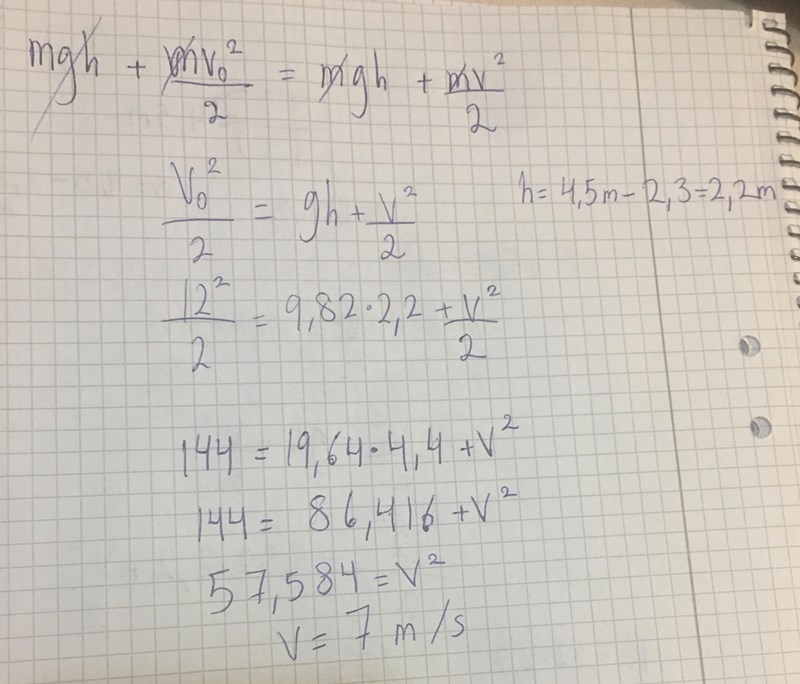 mgh + mv₀²/2 = mgh + mv²/2
v₀²/2 = gh + v²/2 h = 4,5m - 2,3 = 2,2m
12²/2 = 9,82·2,2 + v²/2
144 = 19,64·4,4 + v²
144 = 86,416 + v²
57,584 = v²
v = 7 m/s